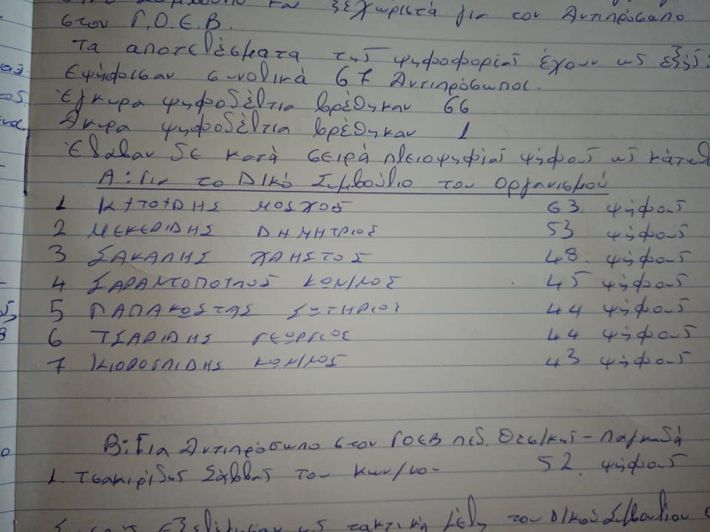 και ξεχωριστά για τον Αντιπρόσωπο
στον Γ.Ο.Ε.Β.
Τα αποτελέσματα της ψηφοφορίας έχουν ως εξής:
Εψήφισαν συνολικά 67 Αντιπρόσωποι.
Έγκυρα ψηφοδέλτια βρέθηκαν 66
Άκυρα ψηφοδέλτια βρέθηκαν 1
Έλαβαν δε κατά σειρά πλειοψηφίας ψήφους ως κάτωθι
Α: Για το Δικό Συμβούλιο του Οργανισμού
1 ΜΟΣΧΟΣ 63 ψήφους
2 ΜΕΚΕΡΙΔΗΣ ΔΗΜΗΤΡΙΟΣ 53 ψήφους
3 ΣΑΚΑΛΗΣ ΧΡΗΣΤΟΣ 48 ψήφους
4 ΣΑΡΑΝΤΟΠΟΥΛΟΣ ΚΩΝ/ΝΟΣ 45 ψήφους
5 ΠΑΠΑΚΩΣΤΑΣ ΣΩΤΗΡΙΟΣ 44 ψήφους
6 ΤΣΑΡΙΔΗΣ ΓΕΩΡΓΙΟΣ 44 ψήφους
7 ΚΩΝ/ΝΟΣ 43 ψήφους
Β: Για Αντιπρόσωπο στον ΓΟΕΒ πεδ. Θεσ/κης - Λαγκαδά
1. Τσακιρίδης Σάββας του Κων/νου 52 ψήφους
τακτικά μέλη του Δικού Συμβουλίου